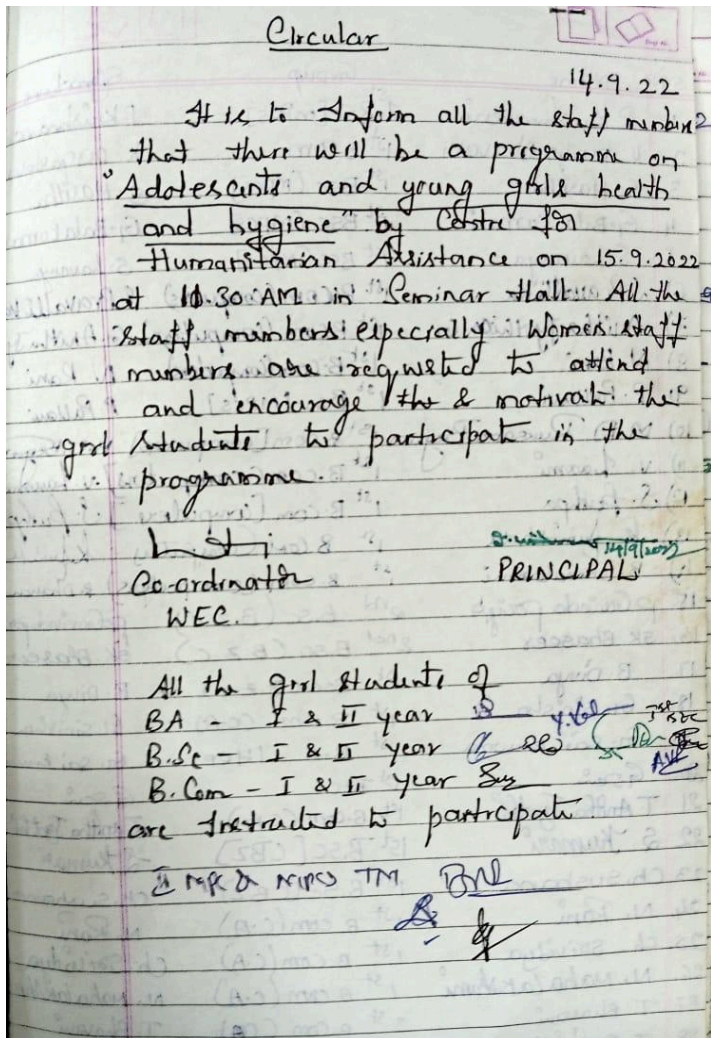 Circular
14.9.22
It is to Inform all the staff members
that there will be a programme on
"Adolescents and young girls health
and hygiene" by Centre for
Humanitarian Assistance on 15.9.2022
at 10.30 AM in Seminar Hall. All the
staff members especially Women staff
members are requested to attend
and encourage the & motivate the
girl students to participate in the
programme.
14/9/2022
Co-ordinator
PRINCIPAL
WEC.
All the girl students of
BA - I & II year
B.Sc - I & II year
B.Com - I & II year
are Instructed to participate